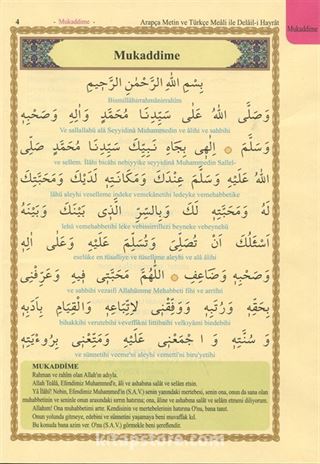 4
- Mukaddime -
Arapça Metin ve Türkçe Meâli ile Delâil-i Hayrât
Mukaddime
Mukaddime
بِسْمِ اللّٰهِ الرَّحْمٰنِ الرَّحِيمِ
Bismillâhirrahmânirrahîm
وَصَلَّى اللّٰهُ عَلٰى سَيِّدِنَا مُحَمَّدٍ وَاٰلِهِ وَصَحْبِهِ
Ve sallallahü alâ Seyyidinâ Muhammedin ve âlihî ve sahbihî
وَسَلَّمَ اِلٰهِى بِجَاهِ نَبِيِّكَ سَيِّدِنَا مُحَمَّدٍ صَلَّى
ve sellem. İlâhi bicâhi nebiyyike seyyidinâ Muhammedin Sallel-
اللّٰهُ عَلَيْهِ وَسَلَّمَ عِنْدَكَ وَمَكَانَتِهِ لَدَيْكَ وَمَحَبَّتِكَ
lâhü aleyhi veselleme indeke vemekânetihî ledeyke vemehabbetike
لَهُ وَمَحَبَّتِهِ لَكَ وَبِالسِّرِّ الَّذِى بَيْنَكَ وَبَيْنَهُ
lehû vemehabbetihî leke vebissirrillezî beyneke vebeynehû
اَسْئَلُكَ اَنْ تُصَلِّىَ وَتُسَلِّمَ عَلَيْهِ وَعَلٰى اٰلِهِ
eselüke en tüsalliye ve tüsellime aleyhi ve alâ âlihî
وَصَحْبِهِ وَضَاعِفِ اَللّٰهُمَّ مَحَبَّتِى فِيهِ وَعَرِّفْنِى
ve sahbihî vezaifi Allahümme Mehabbeti fîhi ve arrifnî
بِحَقِّهِ وَرُتَبِهِ وَوَفِّقْنِى لِاتِّبَاعِهِ وَالْقِيَامِ بِاَدَبِهِ
bihakkihî verutebihî veveffıknî littibaîhî velkıyâmi biedebihî
وَسُنَّتِهِ وَاجْمَعْنِى عَلَيْهِ وَمَتِّعْنِى بِرُوءْيَتِهِ
ve sünnetihî vecme'nî aleyhi vemetti'nî biru'yetihî
MUKADDİME
Rahman ve rahîm olan Allah'ın adıyla.
Allah Teâlâ, Efendimiz Muhammed'e, âli ve ashabına salât ve selâm etsin.
Yâ İlâhî! Nebin, Efendimiz Muhammed'in (S.A.V.) senin yanındaki mertebesi, senin ona, onun da sana olan
muhabbetinin ve seninle onun arasındaki sırrın hatırına; ona, âline ve ashabına salât ve selâm etmeni diliyorum.
Allahım! Ona muhabbetimi artır. Kendisinin ve mertebelerinin hatırına O'nu, bana tanıt.
Onun yolunda gitmeye, edebini ve sünnetini yaşamaya beni muvaffak kıl.
Bu konuda bana azim ver. O'nu (S.A.V.) görmekle beni şereflendir.
kitapyurdu.com